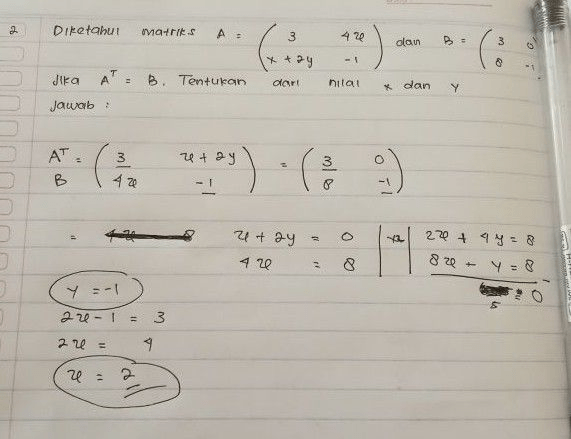 2 Diketahui matriks A = ( 3 4x ) dan B = ( 3 0
( x + 2y -1 ) ( 8 -1
Jika A^T = B. Tentukan dari nilai x dan y
Jawab :
A^T = ( 3 x + 2y ) = ( 3 0 )
B ( 4x -1 ) ( 8 -1 )
= x + 2y = 0 | x2 | 2x + 4y = 8
4x = 8 | | 8x - y = 8 -
y = -1 = 0
5
2x - 1 = 3
2x = 4
x = 2